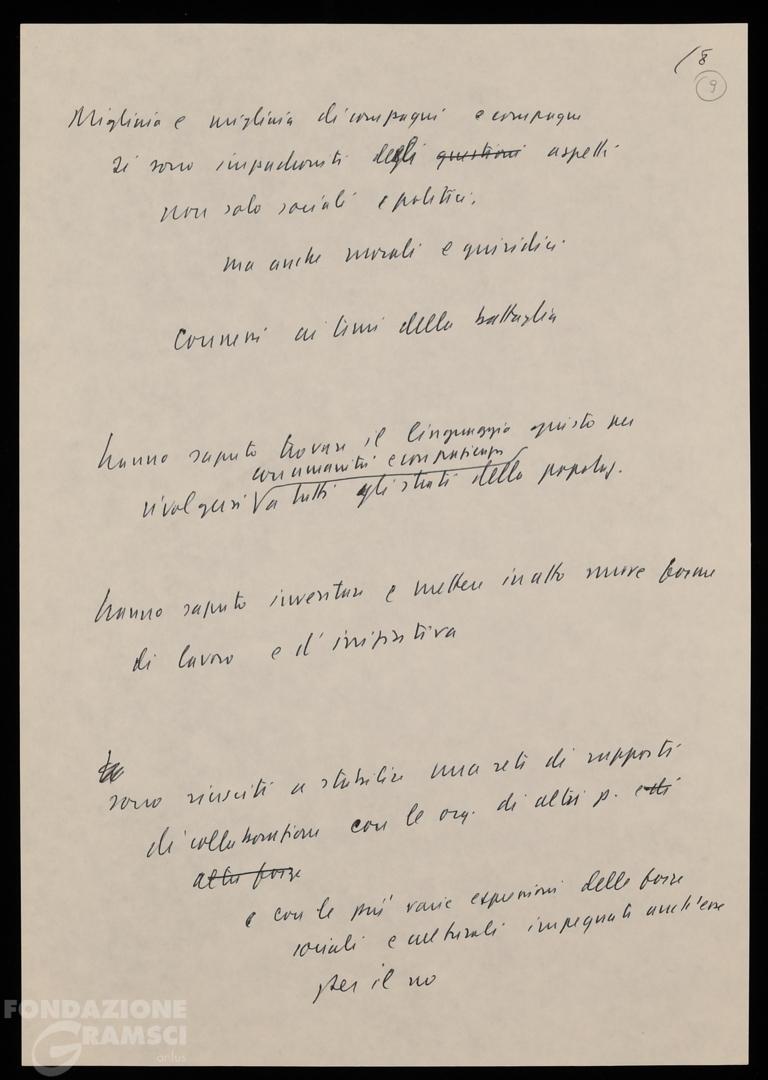 /8
9
Migliaia e migliaia di compagni e compagne
si sono impadroniti degli questioni aspetti
non solo sociali e politici,
ma anche morali e giuridici
connessi ai temi della battaglia
hanno saputo trovare il linguaggio giusto per
con umanità e con pazienza
rivolgersi a tutti gli strati della popolaz.
hanno saputo inventare e mettere in atto nuove forme
di lavoro e d'iniziativa
sono riusciti a stabilire una rete di rapporti
di collaborazione con le org. di altri p. e di
altre forze
e con le più varie espressioni delle forze
sociali e culturali impegnate anch'esse
per il no
FONDAZIONE
GRAMSCI
onlus